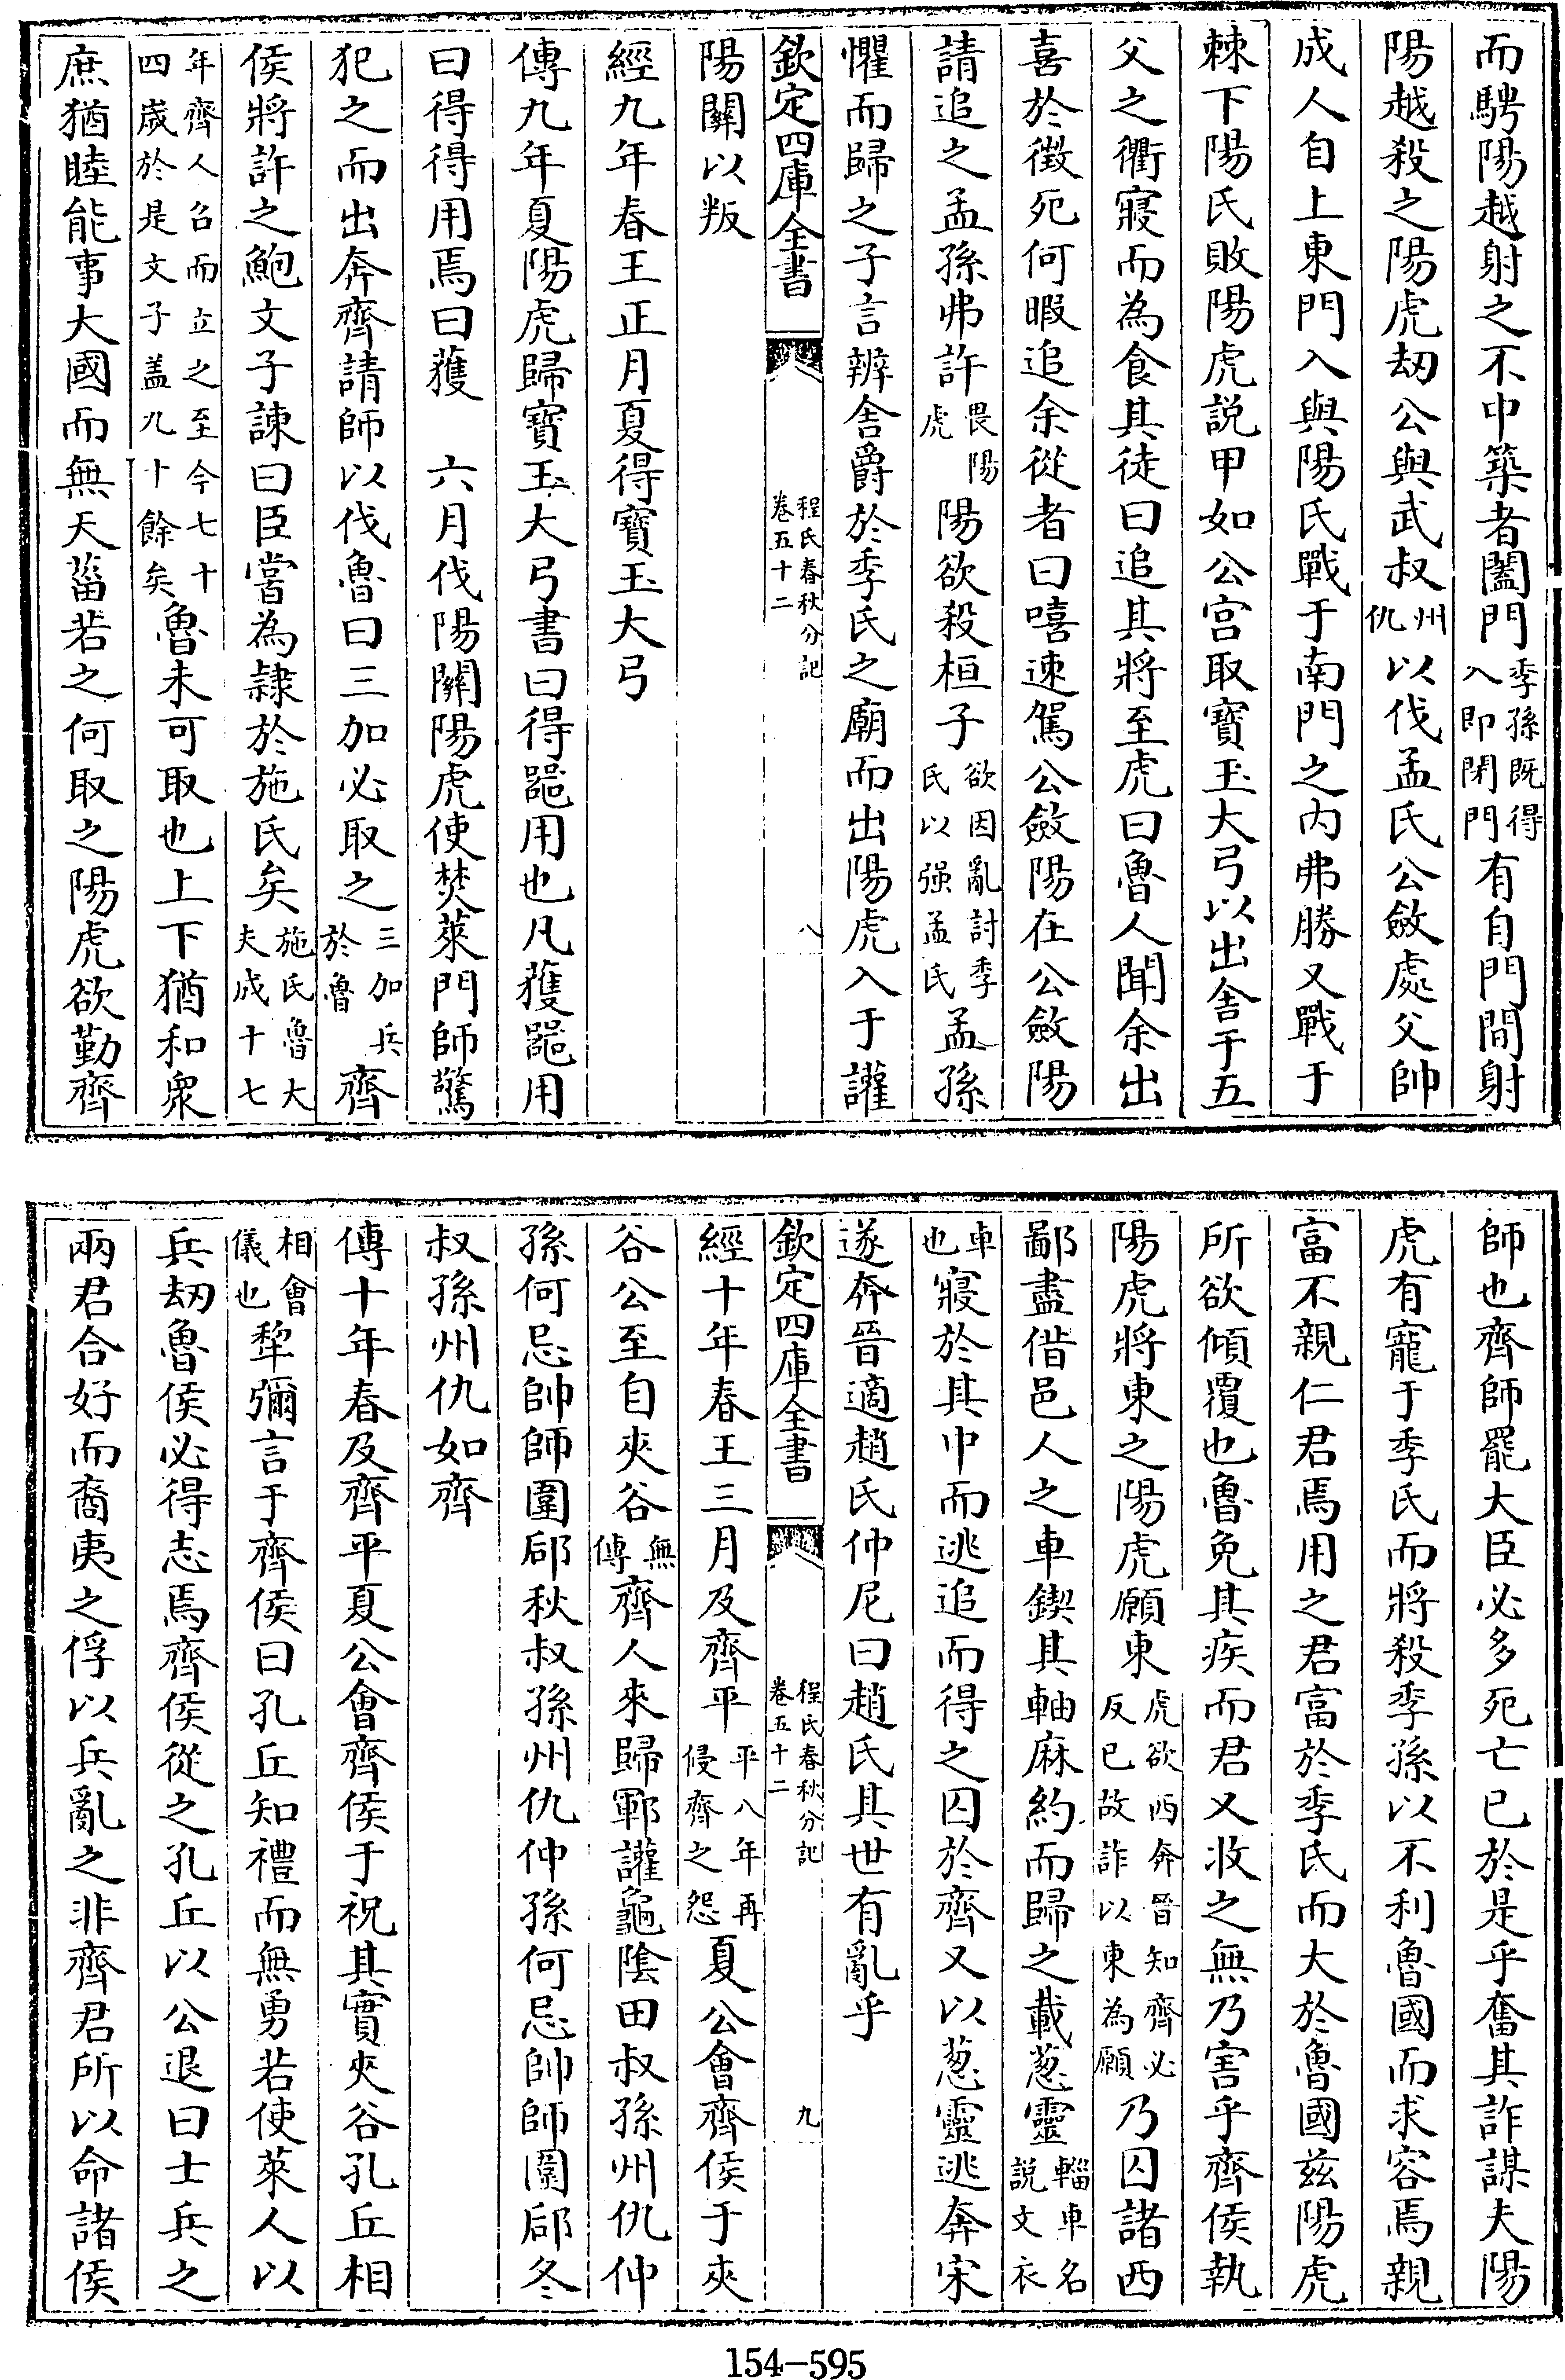 而騁陽越射之不中築者闔門季孫既得入即閉門有自門間射
陽越殺之陽虎刼公與武叔州仇以伐孟氏公斂處父帥
成人自上東門入與陽氏戰于南門之内弗勝又戰于
棘下陽氏敗陽虎説甲如公宫取寶玉大弓以出舍于五
父之衢寢而為食其徒曰追其將至虎曰魯人聞余出
喜於徴死何暇追余從者曰嘻速駕公斂陽在公斂陽
請追之孟孫弗許畏陽虎陽欲殺桓子欲因亂討季氏以强孟氏孟孫
懼而歸之子言辨舍爵於季氏之廟而出陽虎入于讙
欽定四庫全書 程氏春秋分記卷五十二 八
陽關以叛
經九年春王正月夏得寶玉大弓
傳九年夏陽虎歸寶玉大弓書曰得器用也凡獲器用
曰得得用焉曰獲 六月伐陽關陽虎使焚萊門師驚
犯之而出奔齊請師以伐魯曰三加必取之三加兵於魯齊
侯將許之鮑文子諫曰臣嘗為隷於施氏矣施氏魯大夫成十七
年齊人召而立之至今七十四歲於是文子盖九十餘矣魯未可取也上下猶和衆
庶猶睦能事大國而無天菑若之何取之陽虎欲勤齊
師也齊師罷大臣必多死亡已於是乎奮其詐謀夫陽
虎有寵于季氏而將殺季孫以不利魯國而求容焉親
富不親仁君焉用之君富於季氏而大於魯國兹陽虎
所欲傾覆也魯免其疾而君又收之無乃害乎齊侯執
陽虎將東之陽虎願東虎欲西奔晉知齊必反已故詐以東為願乃囚諸西
鄙盡偕邑人之車鍥其軸麻約而歸之載葱靈輜車名説文衣
車也寢於其中而逃追而得之囚於齊又以葱靈逃奔宋
遂奔晉適趙氏仲尼曰趙氏其世有亂乎
欽定四庫全書 程氏春秋分記卷五十二 九
經十年春王三月及齊平平八年再侵齊之怨夏公會齊侯于夾
谷公至自夾谷無傳齊人來歸鄆讙龜陰田叔孫州仇仲
孫何忌帥師圍郈秋叔孫州仇仲孫何忌帥師圍郈冬
叔孫州仇如齊
傳十年春及齊平夏公會齊侯于祝其實夾谷孔丘相
相會儀也犂彌言于齊侯曰孔丘知禮而無勇若使萊人以
兵刼魯侯必得志焉齊侯從之孔丘以公退曰士兵之
兩君合好而裔夷之俘以兵亂之非齊君所以命諸侯
154-595